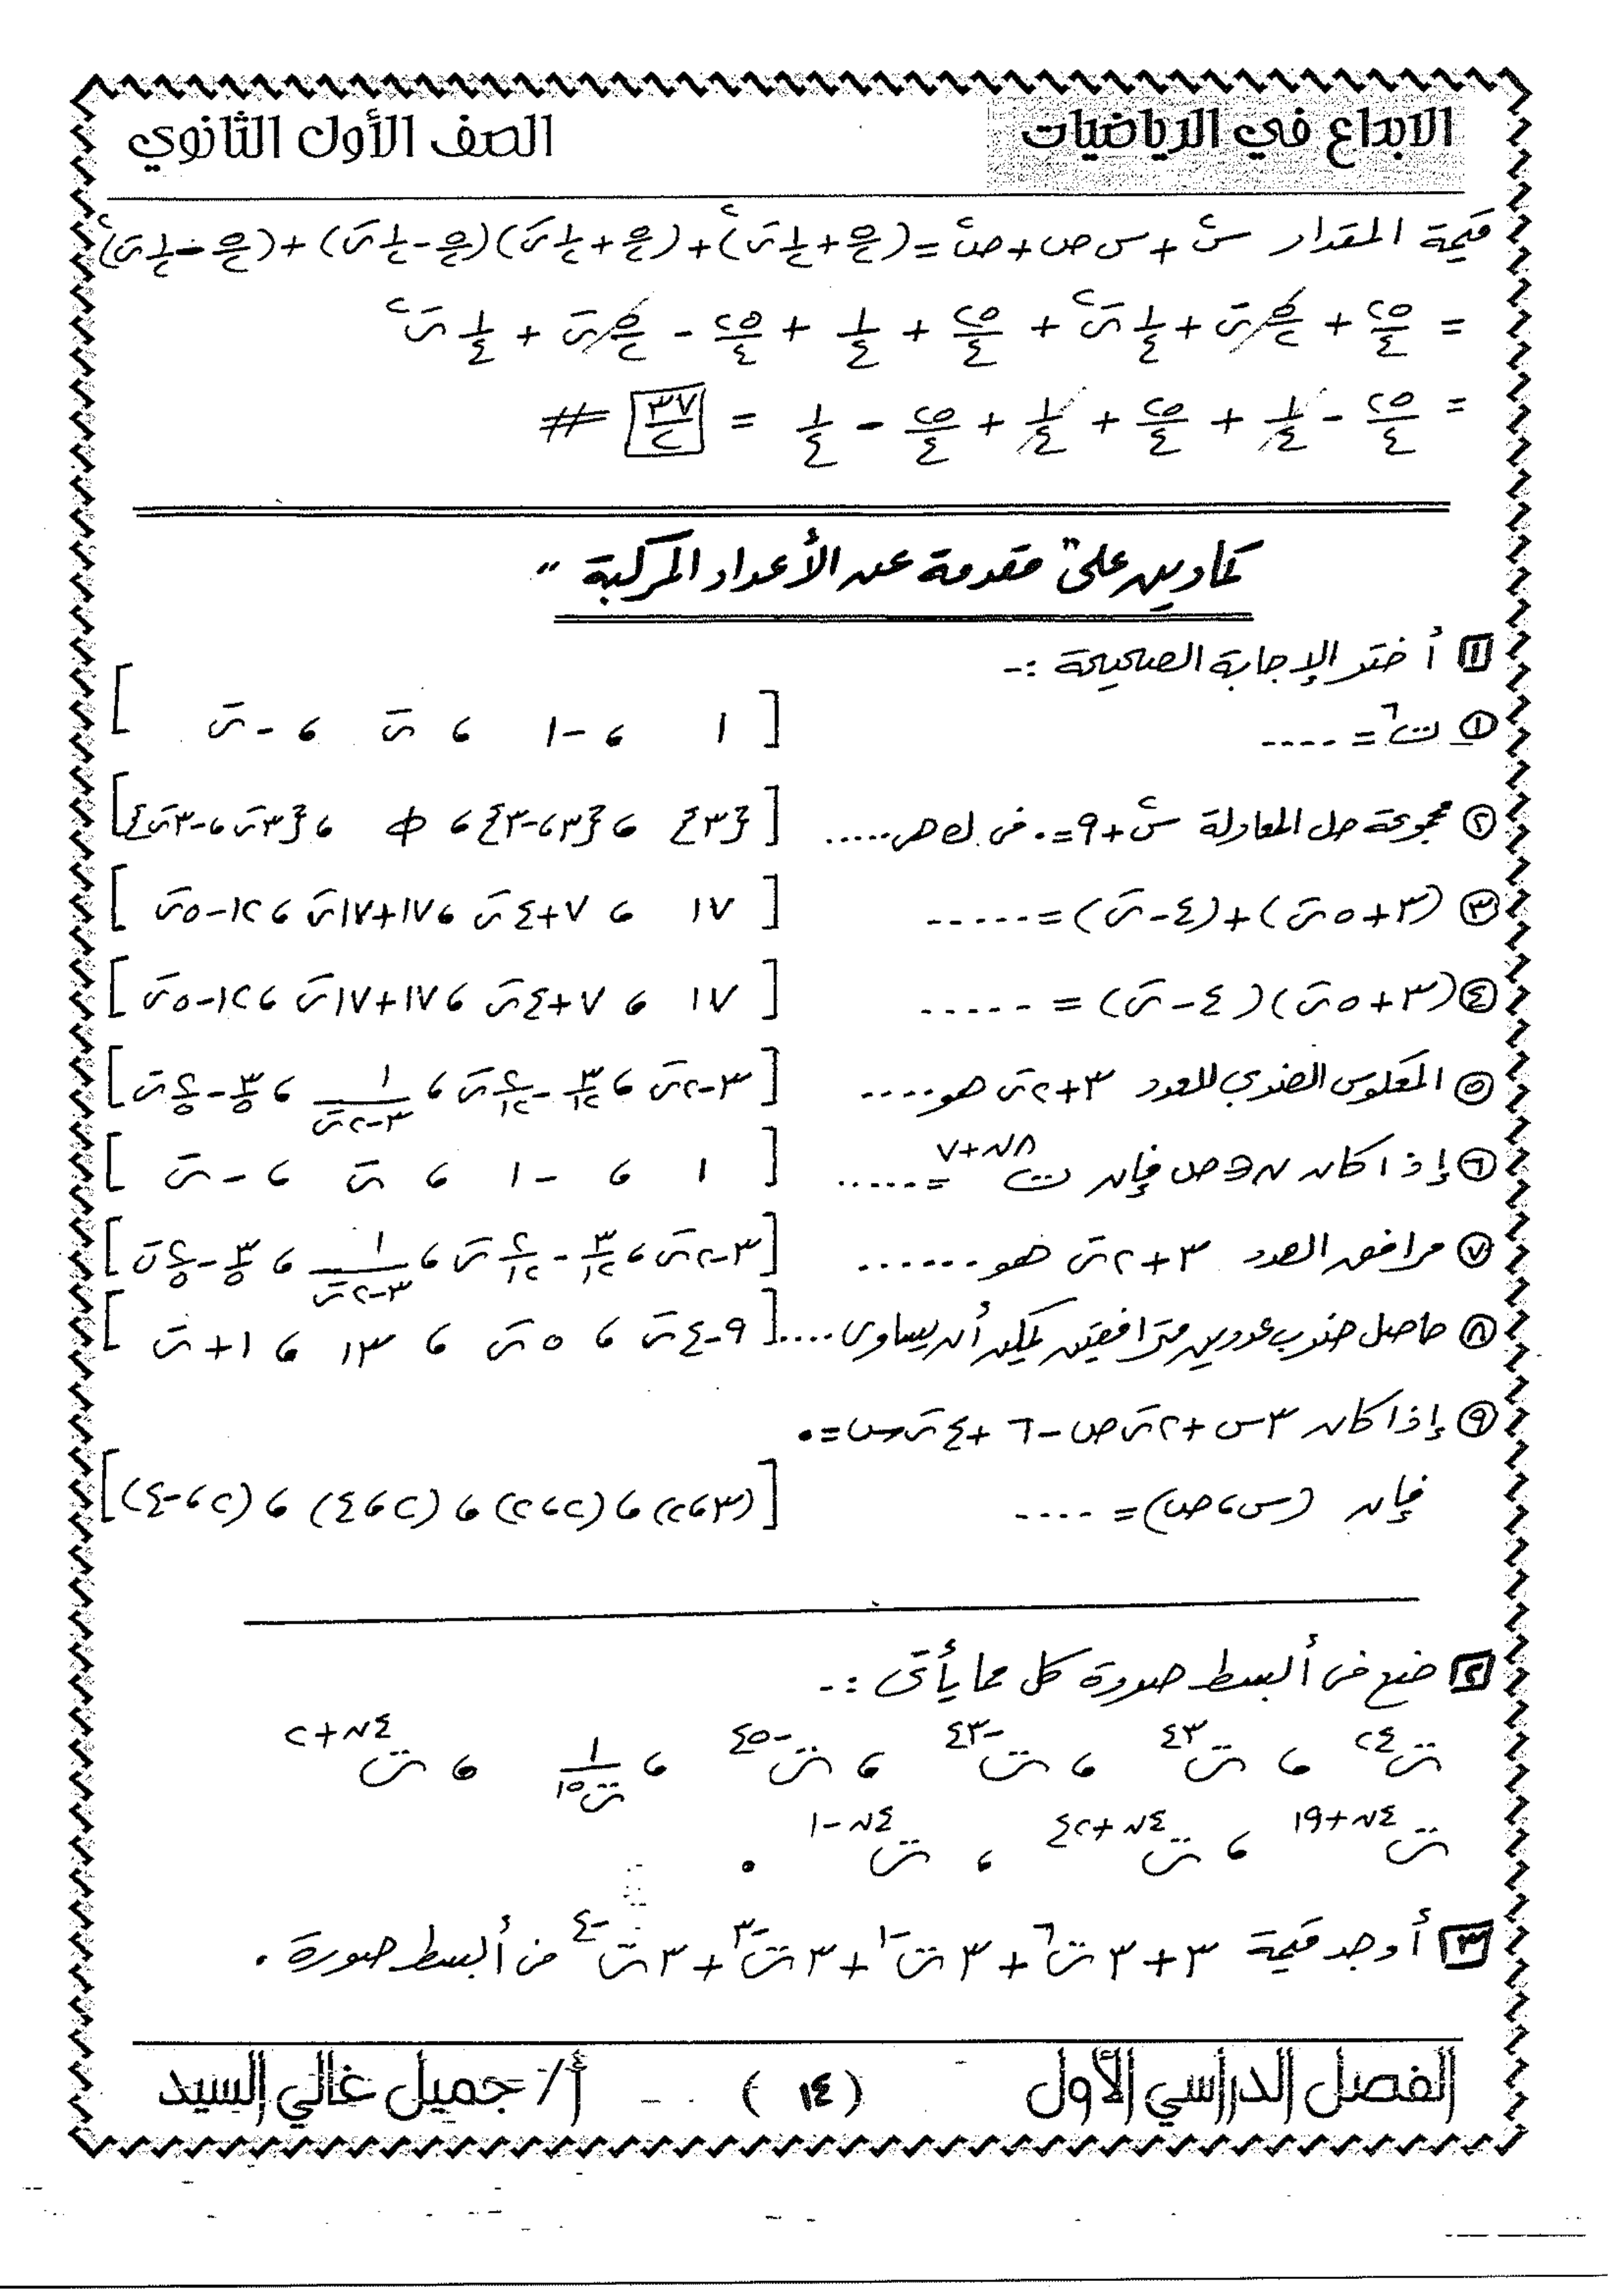 الابداع في الرياضيات
الصف الأول الثانوي
قيمة المقدار س٢ + س ص + ص٢ = (٥/٢ + ١/٢ ت)٢ + (٥/٢ + ١/٢ ت)(٥/٢ - ١/٢ ت) + (٥/٢ - ١/٢ ت)٢
= ٢٥/٤ + ٥/٢ ت + ١/٤ ت٢ + ٢٥/٤ + ١/٤ + ٢٥/٤ - ٥/٢ ت + ١/٤ ت٢
= ٢٥/٤ - ١/٤ + ٢٥/٤ + ١/٤ + ٢٥/٤ - ١/٤ = ٣٧/٢ #
تمارين على " مقدمة عن الأعداد المركبة "
١ أختر الإجابة الصحيحة :-
١ ت٦ = .... [ ١ ، -١ ، ت ، -ت ]
٢ مجموعة حل المعادلة س٢ + ٩ = ٠ فى ك هى ..... [ {٣} ، {٣ ، -٣} ، Φ ، {٣ت ، -٣ت} ]
٣ (٣ + ٥ت) + (٤ - ت) = ..... [ ١٧ ، ٧ + ٤ت ، ١٧ + ١٧ت ، ١٢ - ٥ت ]
٤ (٣ + ٥ت)(٤ - ت) = ..... [ ١٧ ، ٧ + ٤ت ، ١٧ + ١٧ت ، ١٢ - ٥ت ]
٥ المعكوس الضربي للعدد ٣ + ٢ت هو .... [ ٣ - ٢ت ، ٣/١٣ - ٢/١٣ ت ، ١/(٣ - ٢ت) ، ٣/٥ - ٢/٥ ت ]
٦ إذا كان ن ∈ ص فإن ت٨ن+٧ = ..... [ ١ ، -١ ، ت ، -ت ]
٧ مرافق العدد ٣ + ٢ت هو ...... [ ٣ - ٢ت ، ٣/١٣ - ٢/١٣ ت ، ١/(٣ - ٢ت) ، ٣/٥ - ٢/٥ ت ]
٨ حاصل ضرب عددين مترافقين يمكن أن يساوى .... [ ٩ - ٤ت ، ٥ت ، ١٣ ، ١ + ت ]
٩ إذا كان ٣س + ٢ت ص - ٦ + ٤ت س = ٠
فإن (س ، ص) = .... [ (٣ ، ٢) ، (٢ ، ٢) ، (٢ ، ٤) ، (٢ ، -٤) ]
٢ ضع فى أبسط صورة كل مما يأتى :-
ت٢٤ ، ت٤٣ ، ت-٤٣ ، ت-٤٥ ، ١/ت١٥ ، ت٤ن+٢
ت٤ن+١٩ ، ت٤ن+٤٢ ، ت٤ن-١ .
٣ أوجد قيمة ٣ + ٣ت٦ + ٣ت-١ + ٣ت-٣ + ٣ت-٤ فى أبسط صورة .
الفصل الدراسي الأول
( ١٤ )
أ / جميل غالي السيد